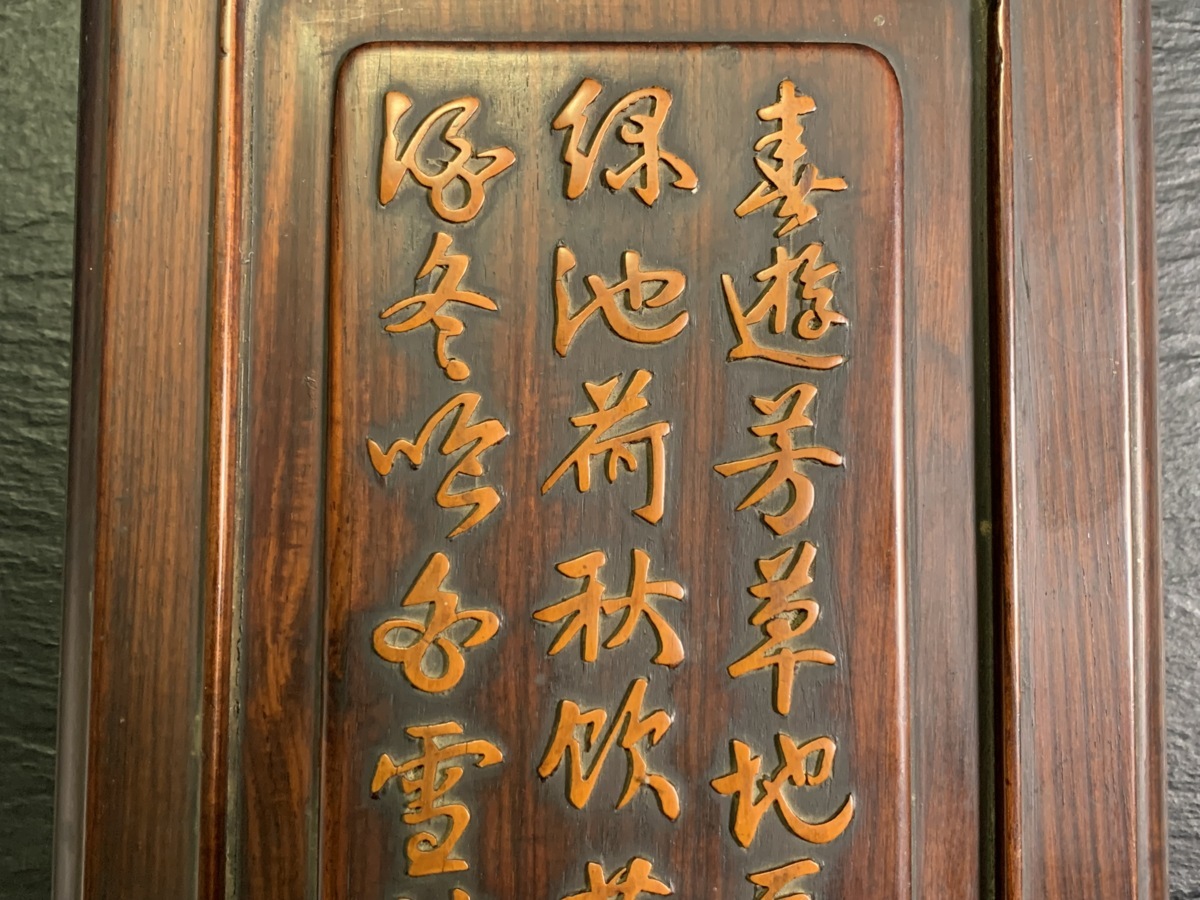 春遊芳草地
綠池荷秋飲黃
酒冬吟白雪